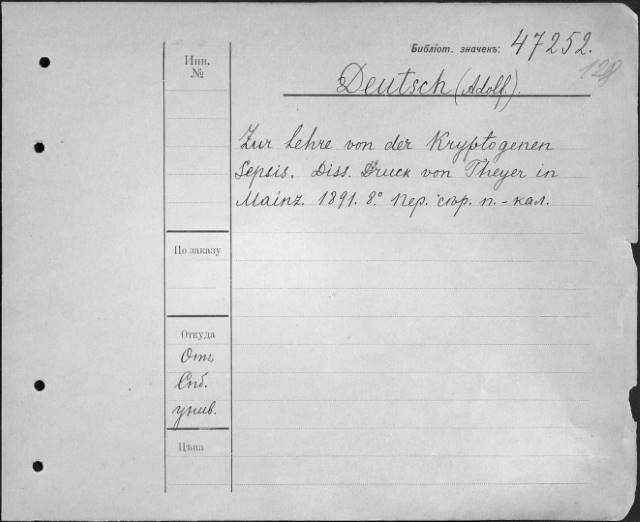 Библіот. значекъ: 47252.
128
Инв.
№
Deutsch (Adolf).
Zur Lehre von der Kryptogenen
Sepsis. Diss. Druck von Theyer in
Mainz. 1891. 8.° Пер. стр. п.-кал.
По заказу
Откуда
Отъ
Спб.
унив.
Цѣна